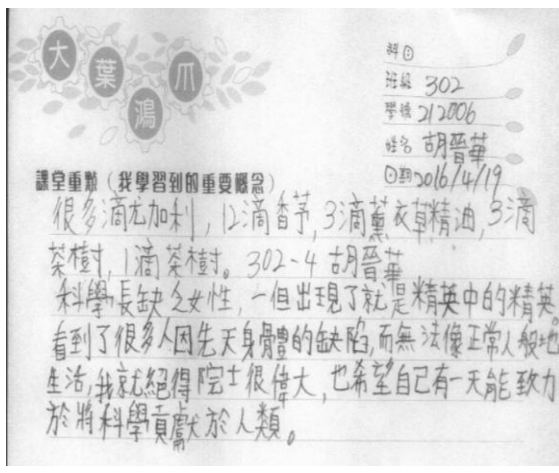 大葉鴻爪
科目
班級 302
學號 212006
姓名 胡晉華
日期 2016/4/19
課堂重點（我學習到的重要概念）
很多滴尤加利，12滴香茅，3滴薰衣草精油，3滴
茶樹，1滴茶樹。302-4 胡晉華
科學長缺乏女性，一但出現了就是精英中的精英。
看到了很多人因先天身體的缺陷，而無法像正常人般地
生活，我就絕得院士很偉大，也希望自己有一天能致力
於將科學貢獻於人類。